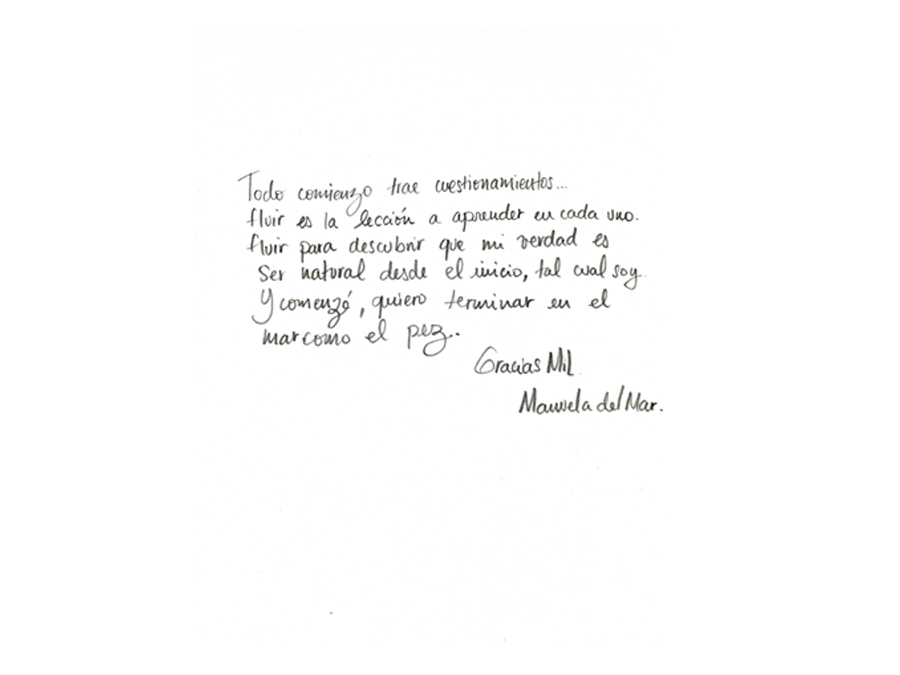 Todo comienzo trae cuestionamientos...
fluir es la lección a aprender en cada uno.
fluir para descubrir que mi verdad es
Ser natural desde el inicio, tal cual soy..
Y comenzó, quiero terminar en el
mar como el pez.
Gracias Mil
Manuela del Mar.